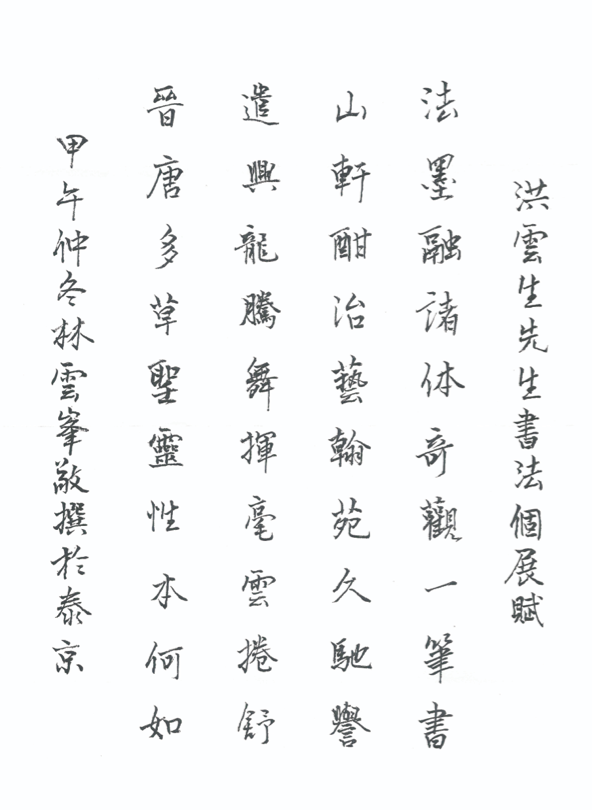 洪雲生先生書法個展賦
法墨融諸体奇觀一筆書
山軒酣治藝翰苑久馳譽
遣興龍騰舞揮毫雲捲舒
晉唐多草聖靈性本何如
甲午仲冬林雲峯敬撰於泰京